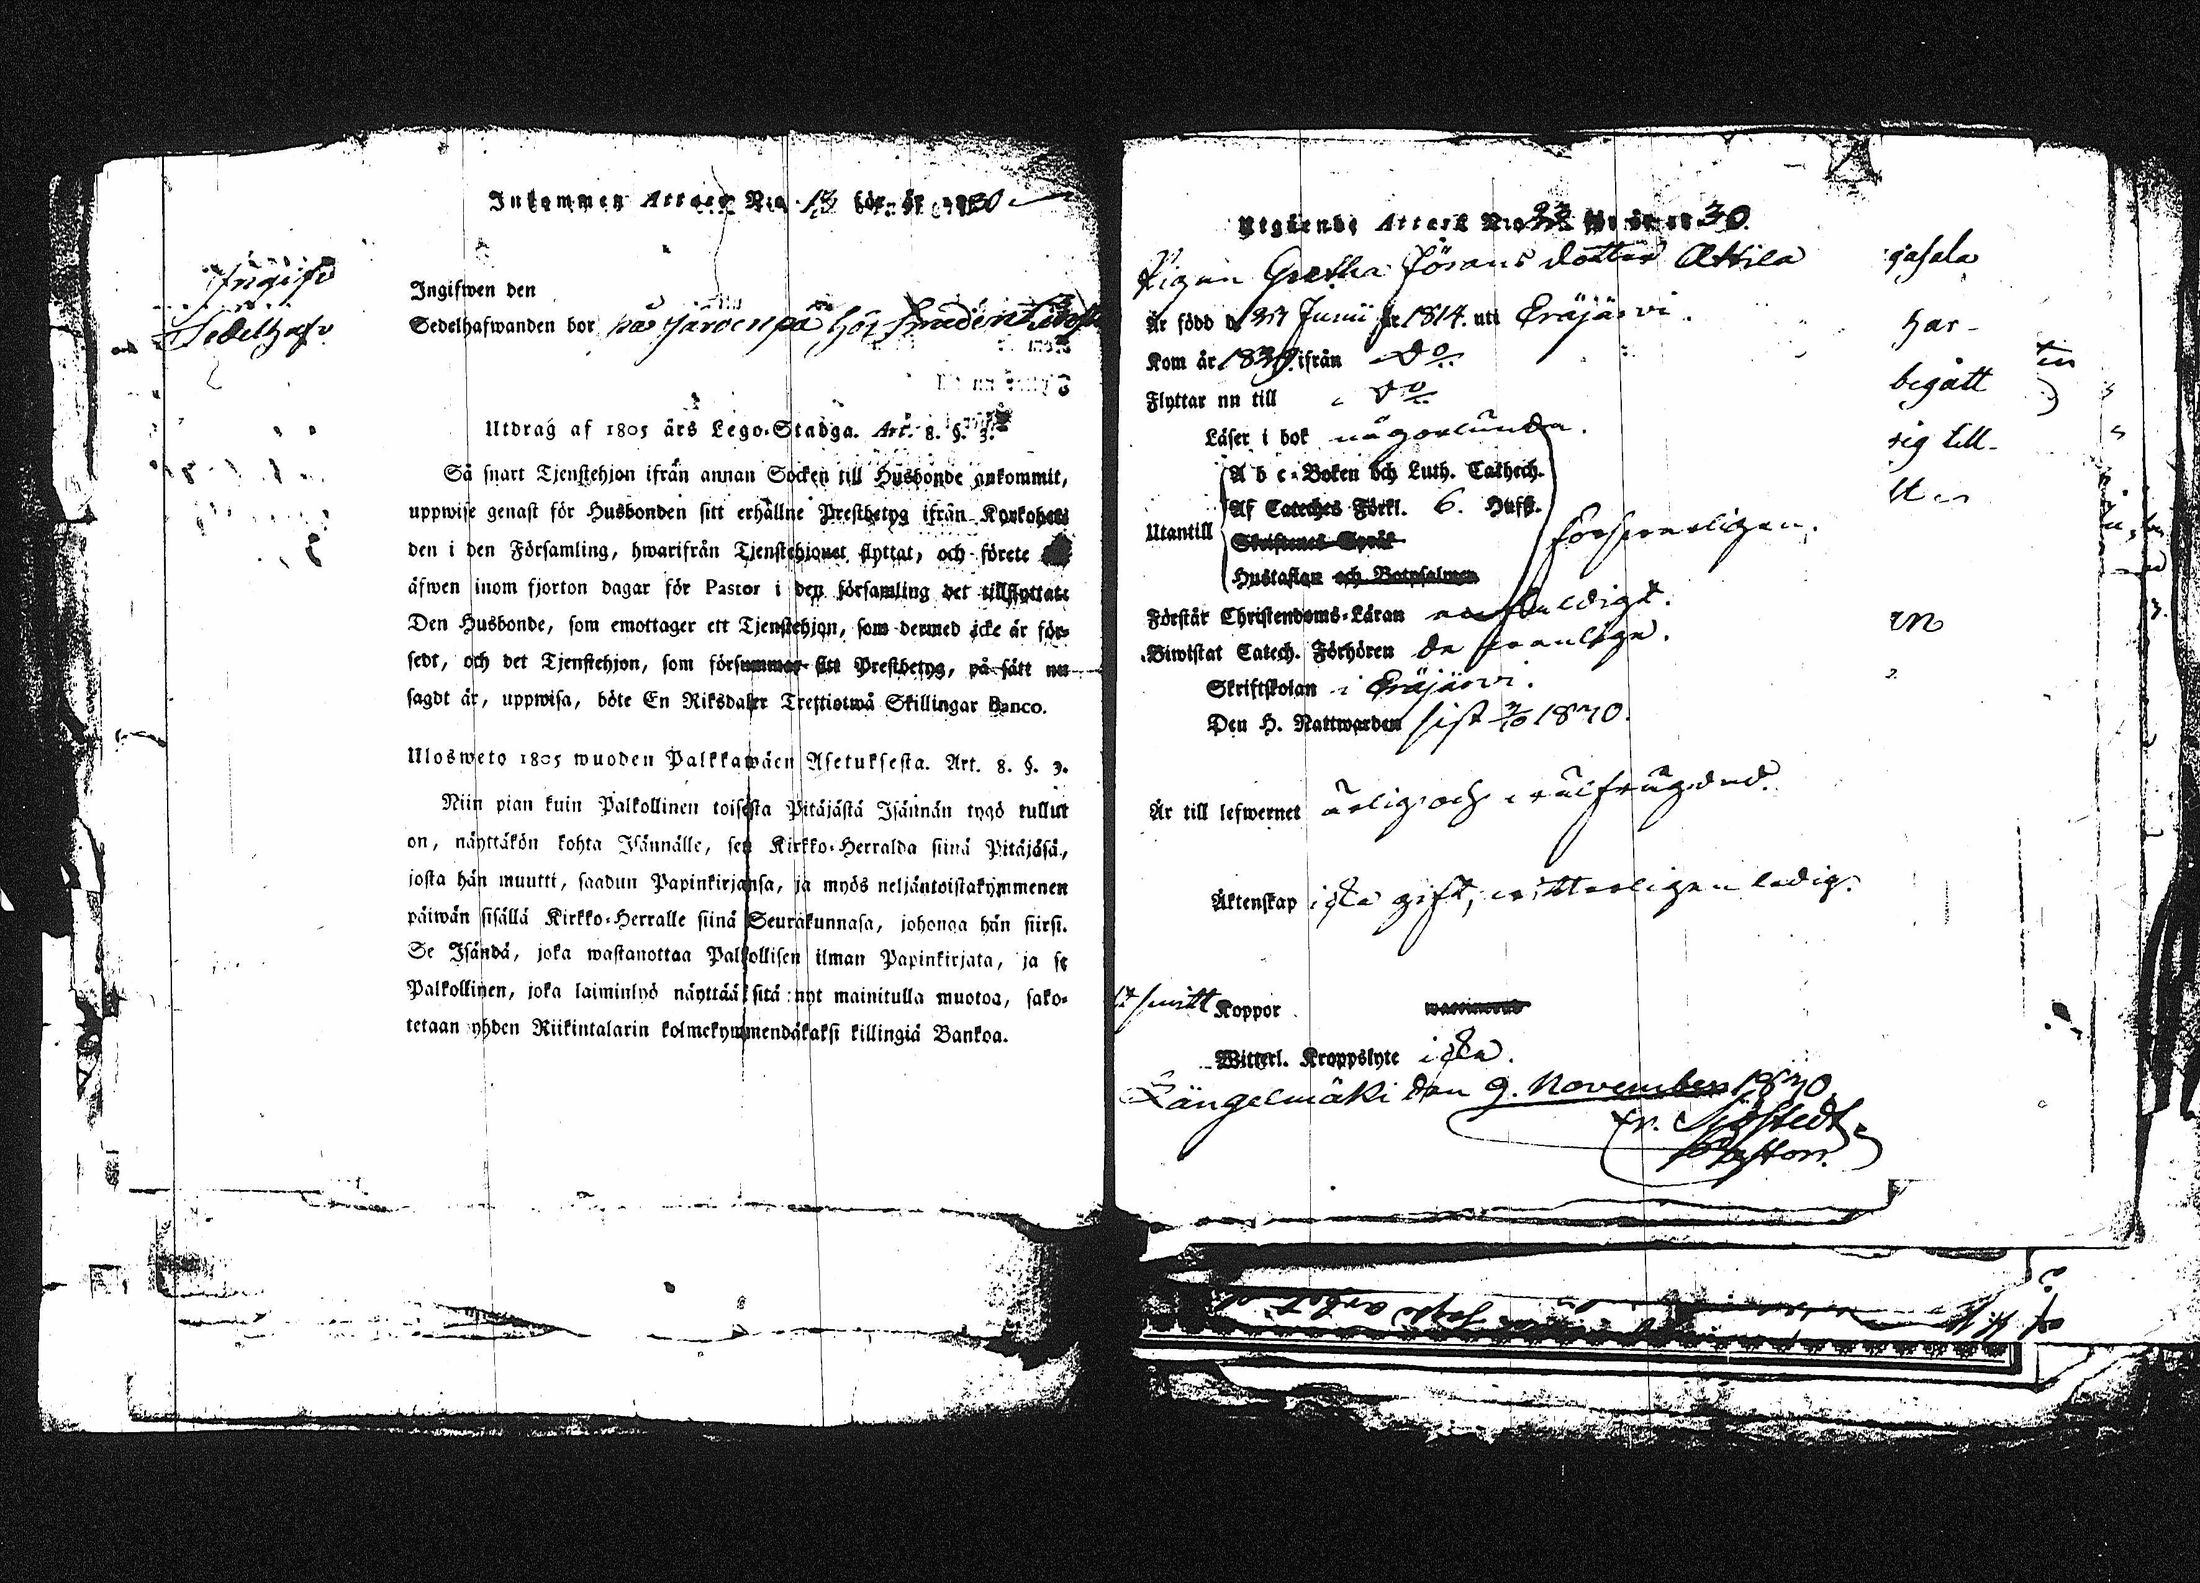 Inkommen Attest N:o 13 för år 1830
Ingifv
Sedelhafv
Ingifwen den
Sedelhafwanden bor på Järvenpä hos Smeden
Utdrag af 1805 års Lego-Stadga. Art. 8. §. 3.
Så snart Tjenstehjon ifrån annan Socken till Husbonde ankommit,
uppwise genast för Husbonden sitt erhållne Prestbetyg ifrån Kyrkoher-
den i den Församling, hwarifrån Tjenstehjonet flyttat, och förete
äfwen inom fjorton dagar för Pastor i den församling det tillflyttat.
Den Husbonde, som emottager ett Tjenstehjon, som dermed icke är för-
sedt, och det Tjenstehjon, som försummar sitt Prestbetyg, på sätt nu
sagdt är, uppwisa, böte En Riksdaler Trettiotwå Skillingar Banco.
Ulosweto 1805 wuoden Palkkawäen Asetuksesta. Art. 8. §. 3.
Niin pian kuin Palkollinen toisesta Pitäjästä Isännän tygö tullut
on, näyttäkön kohta Isännälle, sen Kirkko-Herralda siinä Pitäjäsä,
josta hän muutti, saadun Papinkirjansa, ja myös neljäntoistakymmenen
päiwän sisällä Kirkko-Herralle siinä Seurakunnasa, johonga hän siirsi.
Se Isändä, joka wastanottaa Palkollisen ilman Papinkirjata, ja se
Palkollinen, joka laiminlyö näyttää sitä nyt mainitulla muotoa, sako-
tetaan yhden Riikintalarin kolmekymmendäkaksi killingiä Bankoa.
Utgående Attest N:o 33 för år 1830.
Pigan Gretha Jörans dotter Attila
Är född d. Junii år 1814. uti Eräjärvi.
Kom år 1830 ifrån D:o
Flyttar nu till D:o
Läser i bok någorlunda.
Utantill
A b c-Boken och Luth. Cathech.
Af Cateches Förkl. 6. Hufst.
Skriftenes Språk
Hustaflan och Botpsalmen
försvarligen.
Förstår Christendoms-Läran enfaldigt.
Biwistat Catech. Förhören de vanliga.
Skriftskolan i Eräjärvi.
Den H. Nattwarden sist 1830.
Är till lefwernet ärlig och välfrägdad.
Äktenskap icke gift, vitterligen ledig.
Koppor
Witterl. Kroppslyte icke.
Längelmäki den 9. November 1830.
Fr. Sjöstedt
Pastor.
har
begått
sig till